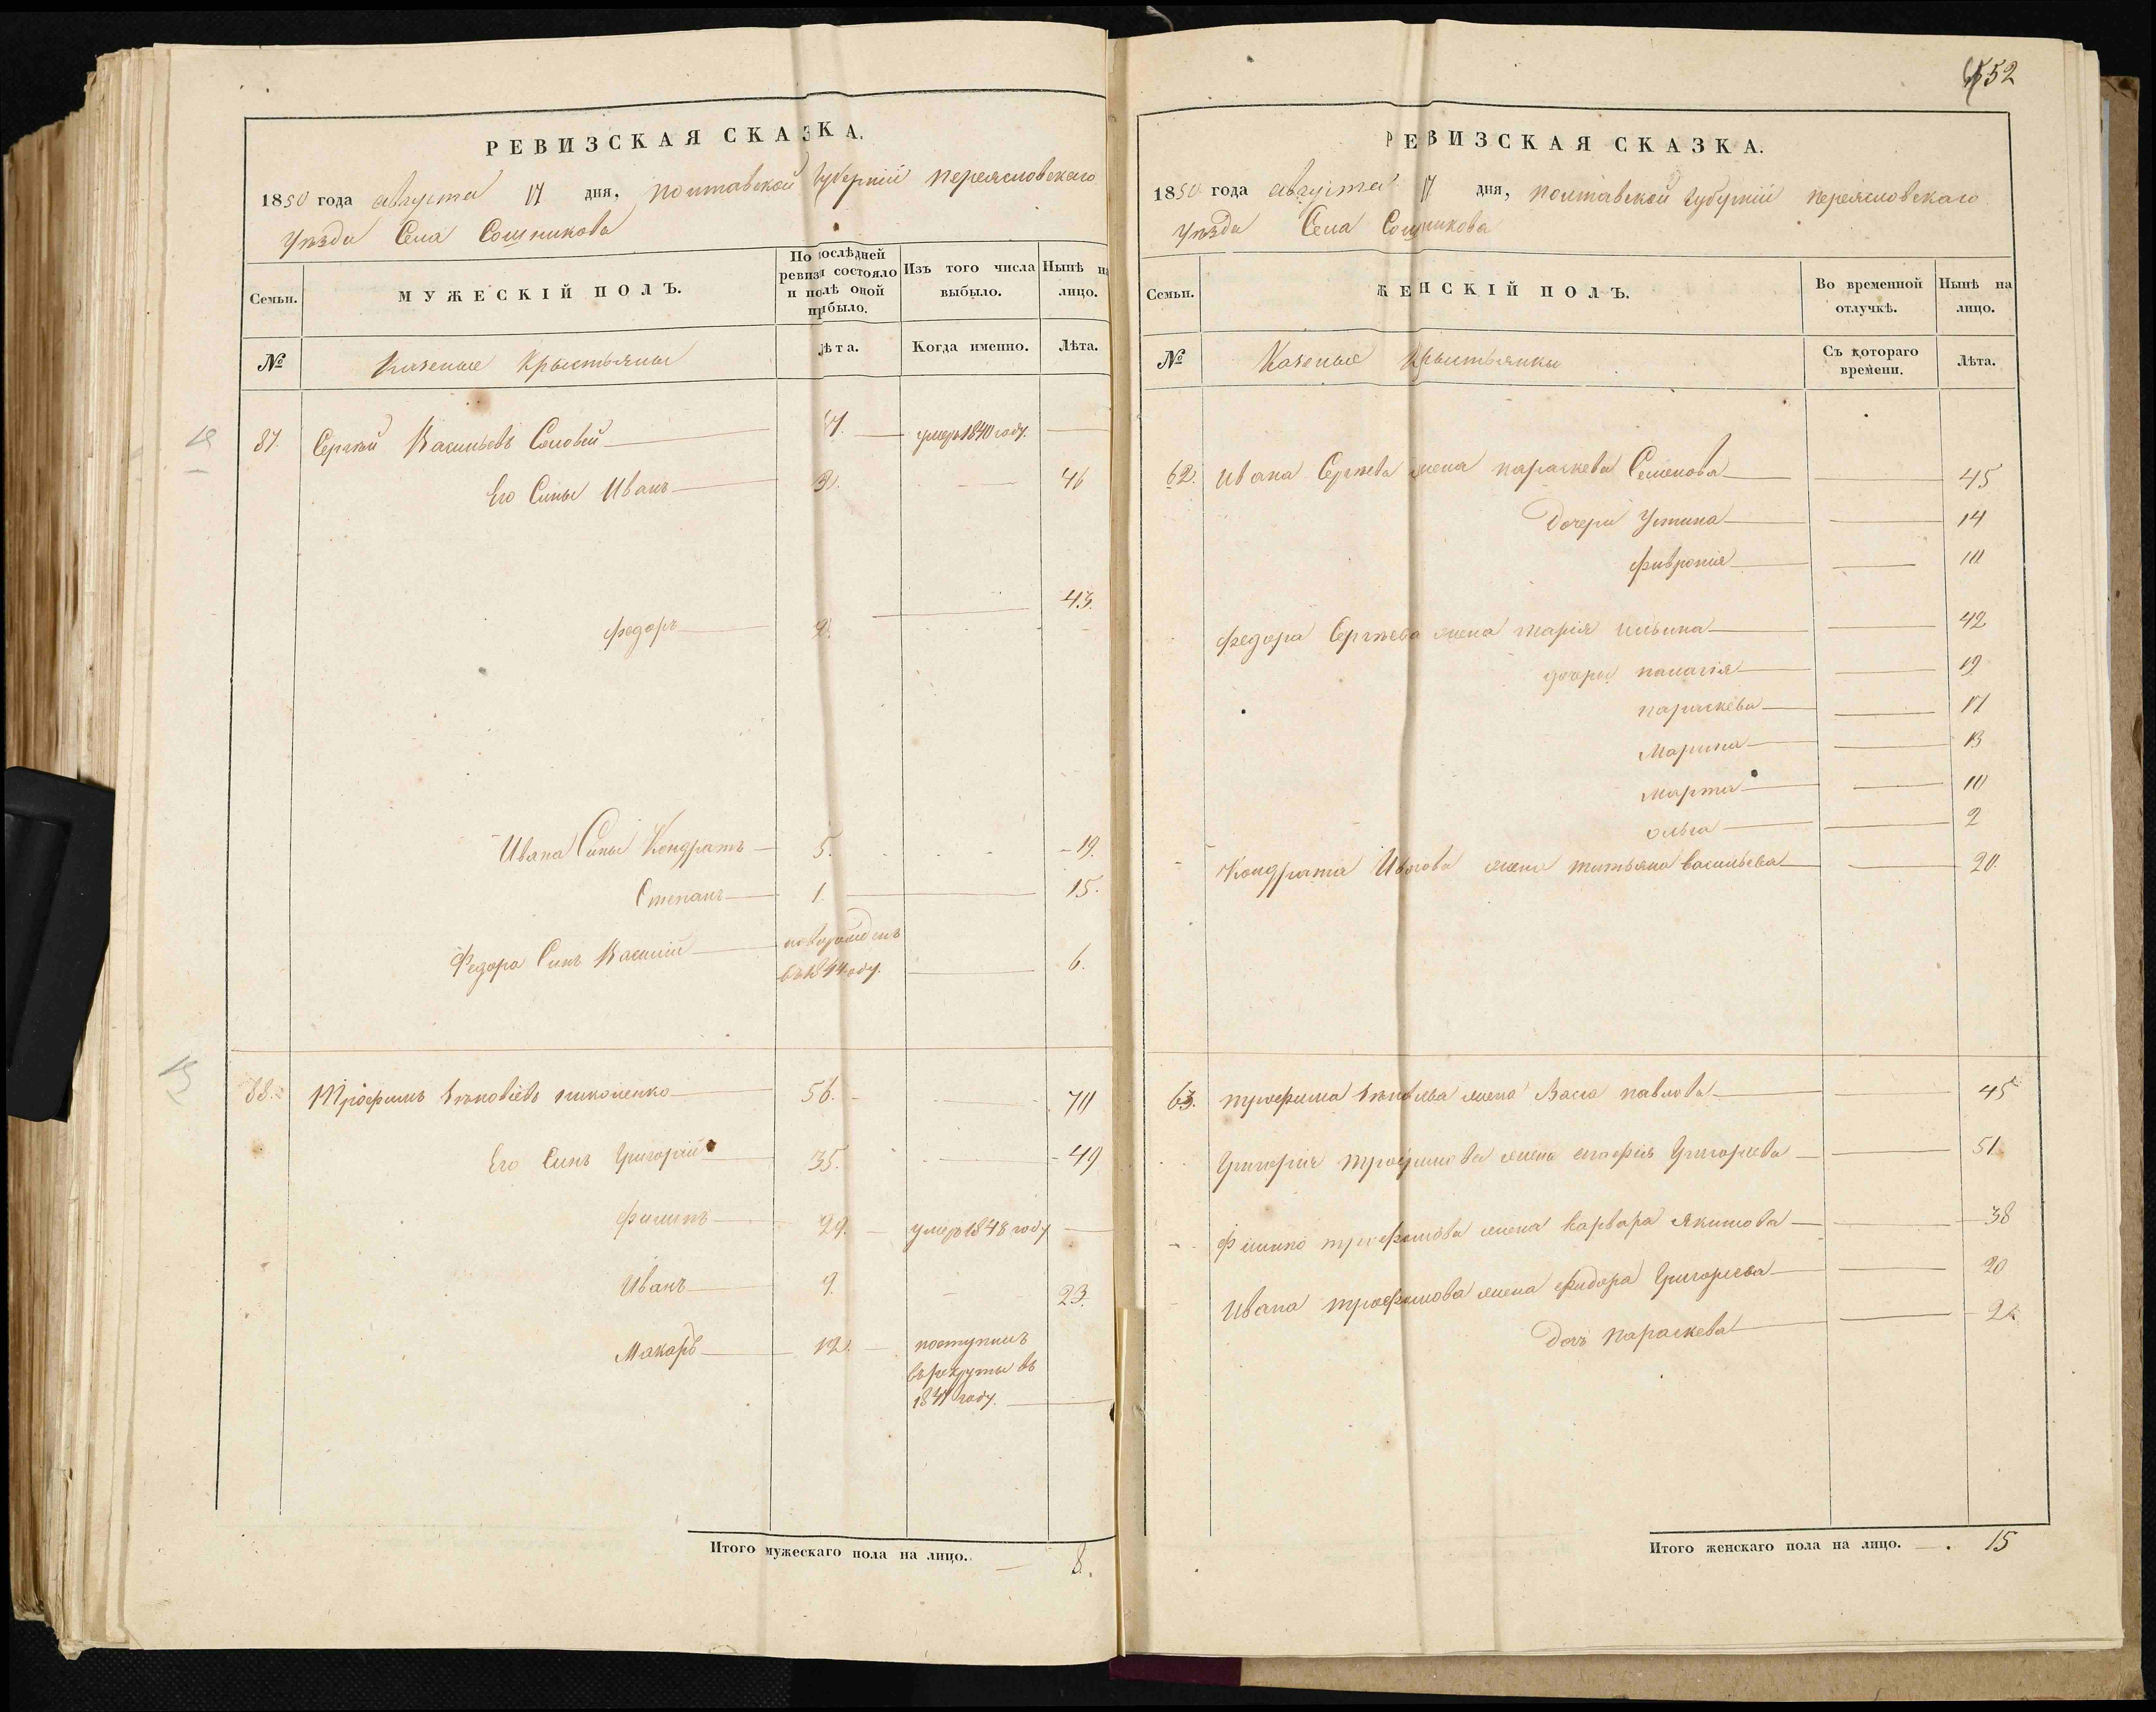 РЕВИЗСКАЯ СКАЗКА.
1850 года августа 17 дня, полтавской Губернiй переясловскаго
Уезда Села Сошникова
Семьи.
МУЖЕСКIЙ ПОЛЪ.
По послѣдней ревизiи состояло и полѣ оной прибыло.
Изъ того числа выбыло.
Нынѣ на лицо.
№
Казеные Крыстьяны
Лѣта.
Когда именно.
Лѣта.
87. Сергѣй Васильевъ Соловей 67. умеръ 1840 году.
Его Сыны Иванъ 46
Федоръ 43.
Ивана Сыны Кондратъ 5. 19.
Степанъ 1. 15.
Федора Сынъ Василiй новорожденъ 6.
въ 1844 году.
88. Трофимъ 56. 70
Его Сынъ Григорiй 35. 49
Филипъ 29. умеръ 1848 году
Иванъ 9. 23.
Макаръ 12. поступилъ
въ рекруты въ
1847 году.
Итого мужескаго пола на лицо. 8.
52
РЕВИЗСКАЯ СКАЗКА.
1850 года августа 17 дня, полтавской Губернiй переясловскаго
Уезда Села Сошникова
Семьи.
ЖЕНСКIЙ ПОЛЪ.
Во временной отлучкѣ.
Нынѣ на лицо.
№
Казеные Крыстьянки
Съ котораго времени.
Лѣта.
62. Ивана Сергѣева жена параскева Семенова 45
Дочери Устина 14
Фивронiя 10
Федора Сергѣева жена марiя ильина 42
дочери палагiя 19
параскева 17
Марина 13
Марта 10
ольга 2
Кондрата Иванова жена татьяна васильева 20.
63. трофима жена Васа павлова 45
Григорiя трофимова жена агафiя Григорiева 51
Филипа трофимова жена варвара Якимова 38
Ивана трофимова жена фидора Григорiева 20
Дочъ параскева 2
Итого женскаго пола на лицо. 15